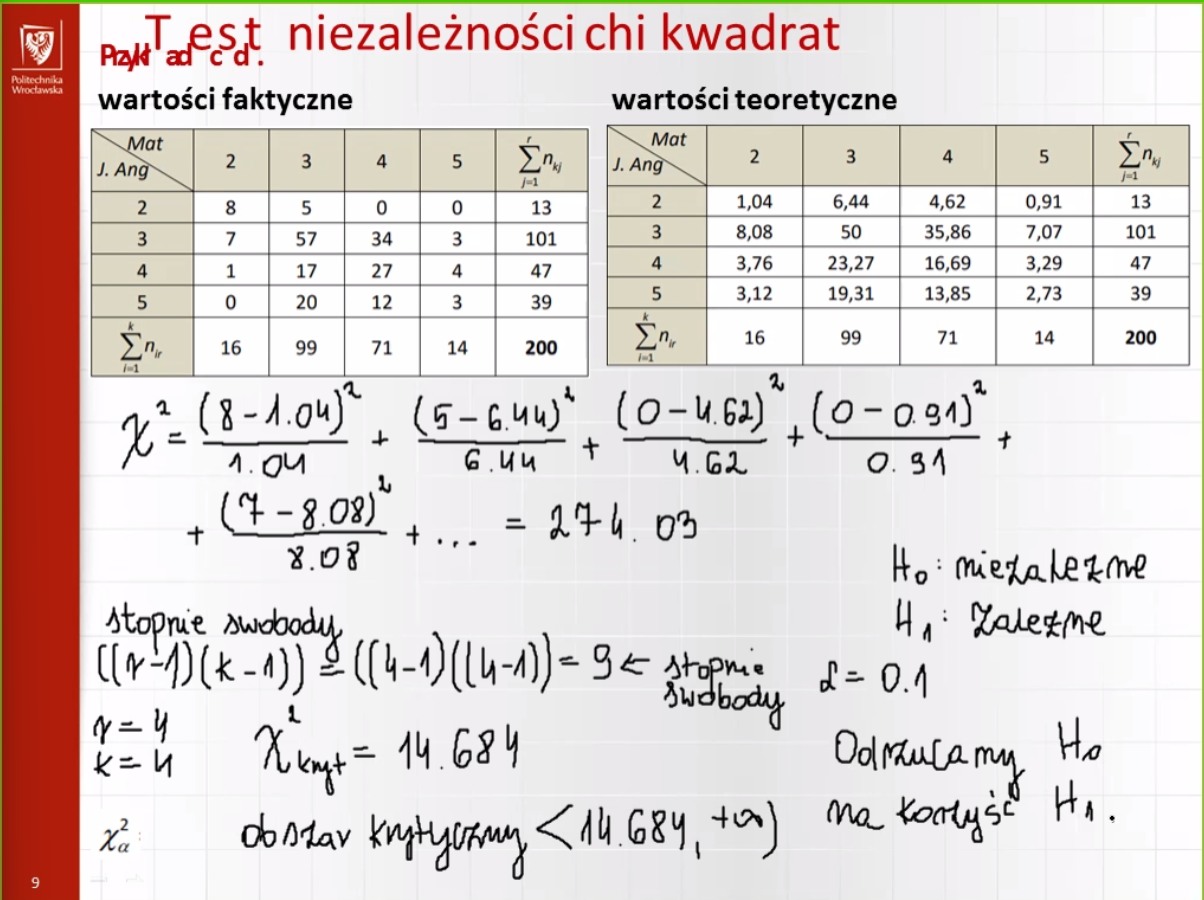 Test niezależności chi kwadrat
Przykład cd.
Politechnika
Wrocławska
wartości faktyczne
Mat
J. Ang
2 3 4 5 r ∑ n_kj j=1
2 8 5 0 0 13
3 7 57 34 3 101
4 1 17 27 4 47
5 0 20 12 3 39
k ∑ n_ir i=1 16 99 71 14 200
wartości teoretyczne
Mat
J. Ang
2 3 4 5 r ∑ n_kj j=1
2 1,04 6,44 4,62 0,91 13
3 8,08 50 35,86 7,07 101
4 3,76 23,27 16,69 3,29 47
5 3,12 19,31 13,85 2,73 39
k ∑ n_ir i=1 16 99 71 14 200
χ² = (8-1.04)²/1.04 + (5-6.44)²/6.44 + (0-4.62)²/4.62 + (0-0.91)²/0.91 +
+ (7-8.08)²/8.08 + ... = 274.03
H₀: niezależne
H₁: Zależne
stopnie swobody
((r-1)(k-1)) = ((4-1)((4-1)) = 9 ← stopnie swobody
α = 0.1
r = 4
k = 4
χ² kryt = 14.684
Odrzucamy H₀
na korzyść H₁.
χ²α:
obszar krytyczny <14.684, +∞)
9